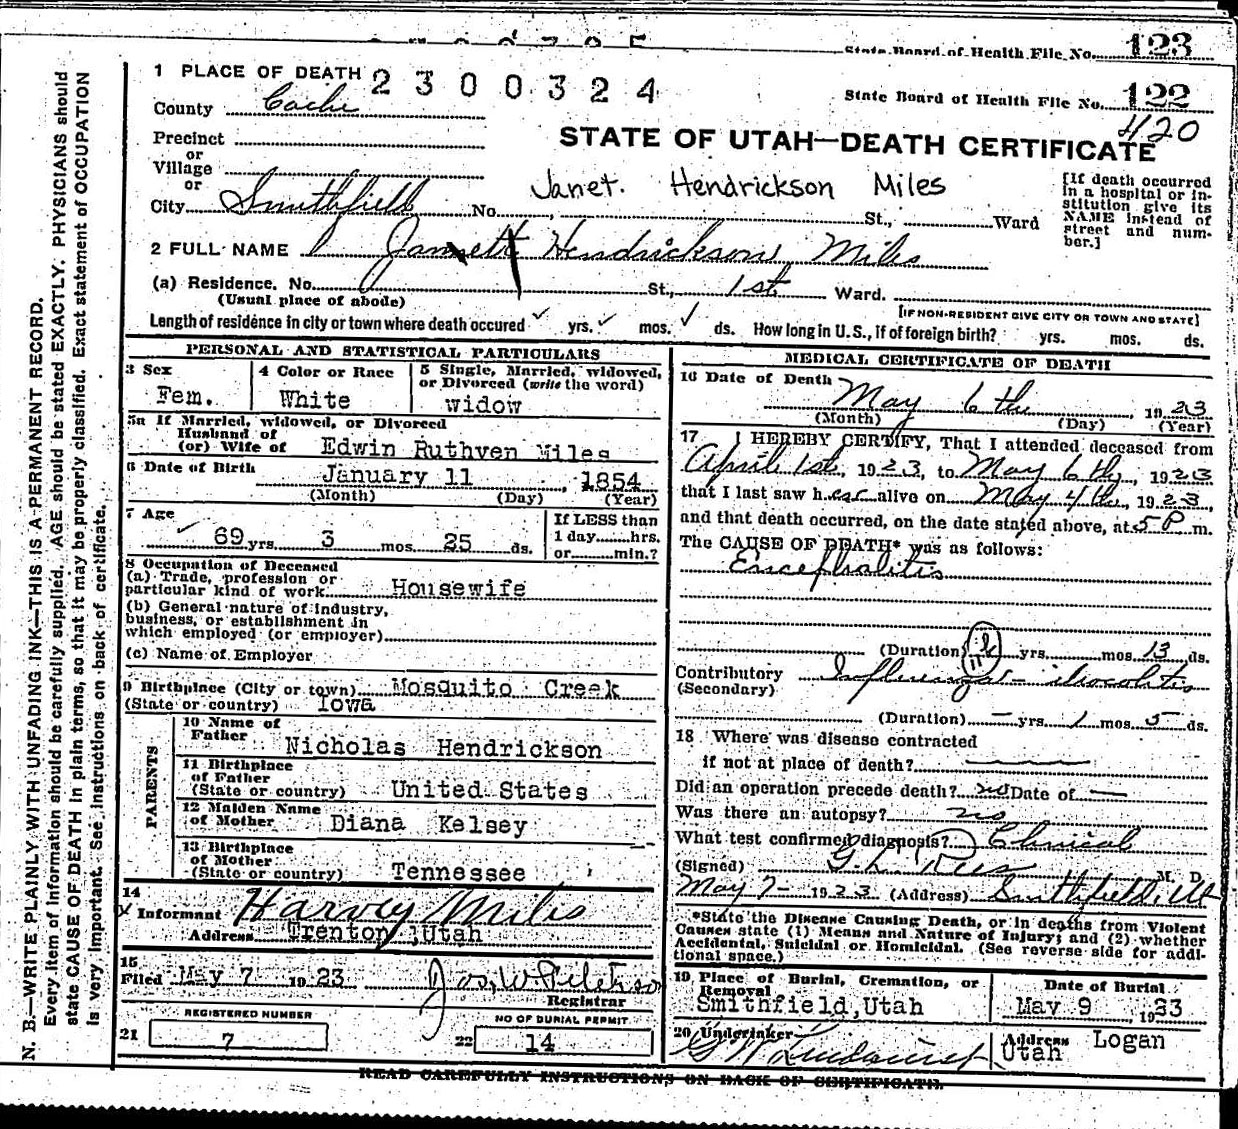 State Board of Health File No. 123
1 PLACE OF DEATH 2300324
State Board of Health File No. 122
County Cache
420
Precinct
STATE OF UTAH—DEATH CERTIFICATE
or
Village
or
Janet. Hendrickson Miles
[If death occurred in a hospital or institution give its NAME instead of street and number.]
City Smithfield No. , St., Ward
2 FULL NAME Jannett Hendrickson Miles
(a) Residence. No. St., 1st Ward.
(Usual place of abode)
[IF NON-RESIDENT GIVE CITY OR TOWN AND STATE]
Length of residence in city or town where death occured ✓ yrs. ✓ mos. ✓ ds. How long in U.S., if of foreign birth? yrs. mos. ds.
PERSONAL AND STATISTICAL PARTICULARS
3 Sex
Fem.
4 Color or Race
White
5 Single, Married, widowed, or Divorced (write the word)
widow
5a If Married, widowed, or Divorced
Husband of
(or) Wife of Edwin Ruthven Miles
6 Date of Birth
January 11, 1854
(Month) (Day) (Year)
7 Age
✓ 69 yrs. 3 mos. 25 ds.
If LESS than
1 day......hrs.
or......min.?
8 Occupation of Deceased
(a) Trade, profession or
particular kind of work Housewife
(b) General nature of industry,
business, or establishment in
which employed (or employer)
(c) Name of Employer
9 Birthplace (City or town) Mosquito Creek
(State or country) Iowa
PARENTS
10 Name of
Father Nicholas Hendrickson
11 Birthplace
of Father
(State or country) United States
12 Maiden Name
of Mother Diana Kelsey
13 Birthplace
of Mother
(State or country) Tennessee
14
x Informant Harvey Miles
Address Trenton, Utah
15
Filed May 7 1923 Jos. W. Peterson
Registrar
REGISTERED NUMBER
21 7
NO OF BURIAL PERMIT
22 14
MEDICAL CERTIFICATE OF DEATH
16 Date of Death
May 6th, 1923
(Month) (Day) (Year)
17 I HEREBY CERTIFY, That I attended deceased from
April 1st, 1923, to May 6th, 1923
that I last saw her alive on May 4th, 1923,
and that death occurred, on the date stated above, at 5 P. m.
The CAUSE OF DEATH* was as follows:
Encephalitis
(Duration) yrs. mos. 13 ds.
Contributory
(Secondary)
(Duration) — yrs. 1 mos. 5 ds.
18 Where was disease contracted
if not at place of death?
Did an operation precede death? no Date of —
Was there an autopsy? no
What test confirmed diagnosis? Clinical
(Signed) G. L. Rees M. D.
May 7- 1923 (Address) Smithfield, Ut
*State the Disease Causing Death, or in deaths from Violent
Causes state (1) Means and Nature of Injury; and (2) whether
Accidental, Suicidal or Homicidal. (See reverse side for addi-
tional space.)
19 Place of Burial, Cremation, or
Removal
Smithfield, Utah
Date of Burial
May 9, 1923
20 Undertaker
Address Logan
Utah
READ CAREFULLY INSTRUCTIONS ON BACK OF CERTIFICATE.
N. B.—WRITE PLAINLY WITH UNFADING INK—THIS IS A PERMANENT RECORD.
Every item of information should be carefully supplied. AGE should be stated EXACTLY. PHYSICIANS should
state CAUSE OF DEATH in plain terms, so that it may be properly classified. Exact statement of OCCUPATION
is very important. See instructions on back of certificate.